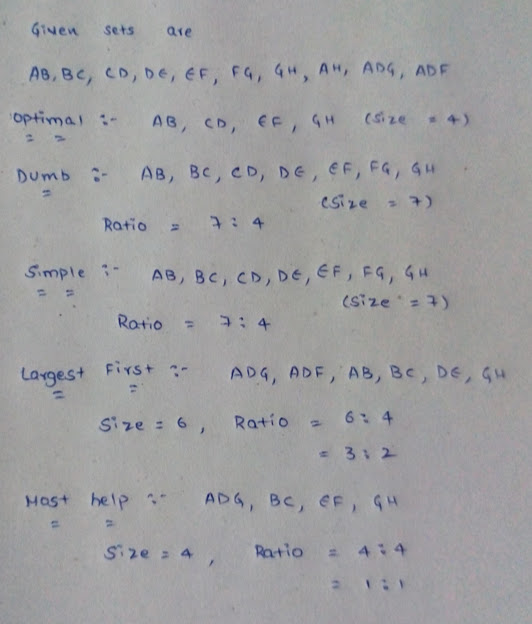 Given sets are
AB, BC, CD, DE, EF, FG, GH, AH, ADG, ADF
Optimal :- AB, CD, EF, GH (Size = 4)
Dumb :- AB, BC, CD, DE, EF, FG, GH
(Size = 7)
Ratio = 7:4
Simple :- AB, BC, CD, DE, EF, FG, GH
(Size = 7)
Ratio = 7:4
Largest First :- ADG, ADF, AB, BC, DE, GH
Size = 6, Ratio = 6:4
= 3:2
Most help :- ADG, BC, EF, GH
Size = 4, Ratio = 4:4
= 1:1